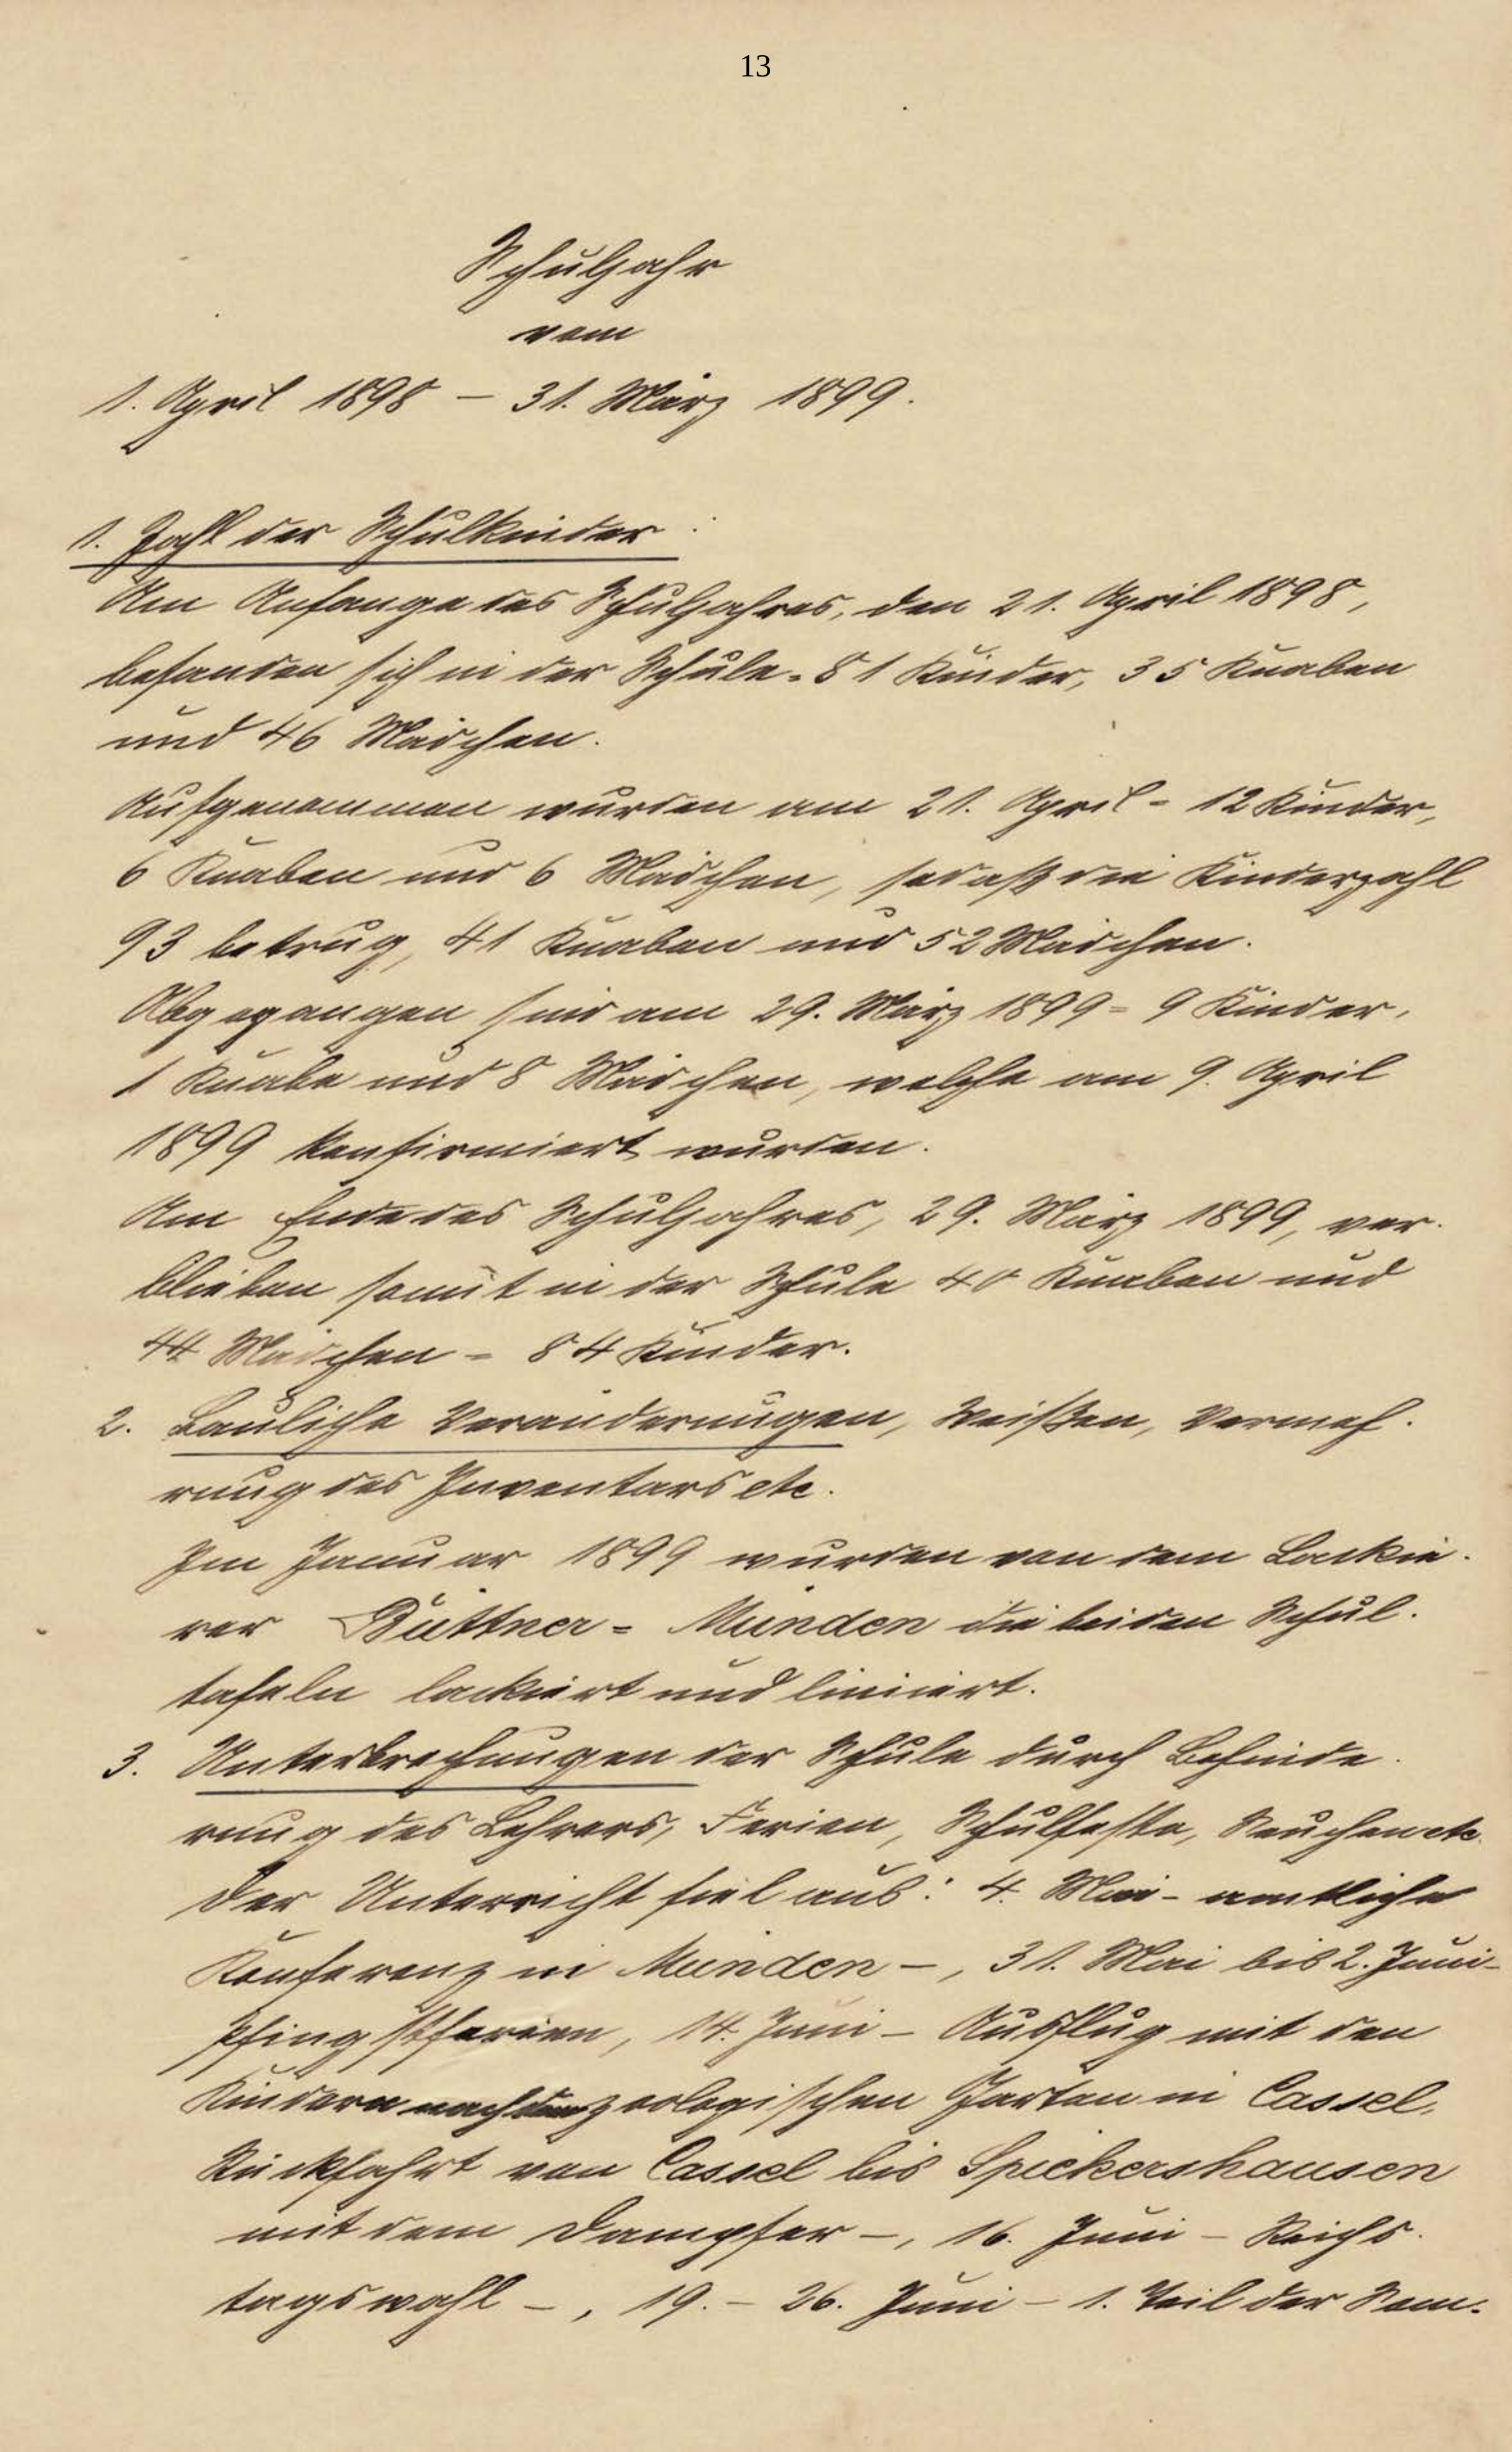 13
Schuljahr
vom
1. April 1898 – 31. März 1899.
1. Zahl der Schulkinder:
Am Anfange des Schuljahres, den 21. April 1898,
befanden sich in der Schule = 81 Kinder, 35 Knaben
und 46 Mädchen.
Aufgenommen wurden am 21. April = 12 Kinder,
6 Knaben und 6 Mädchen, sodaß die Kinderzahl
93 betrug, 41 Knaben und 52 Mädchen.
Abgegangen sind am 29. März 1899 = 9 Kinder,
1 Knabe und 8 Mädchen, welche am 9. April
1899 konfirmiert wurden.
Am Ende des Schuljahres, 29. März 1899, ver-
blieben somit in der Schule 40 Knaben und
44 Mädchen = 84 Kinder.
2. Bauliche Veränderungen, Weißen, Vermeh-
rung des Inventars etc.
Im Januar 1899 wurden von dem Lackie-
rer Büttner = Münden die beiden Schul-
tafeln lackiert und liniiert.
3. Unterbrechungen der Schule durch Behinde-
rung des Lehrers, Ferien, Schulfeste, Seuchen etc.
Der Unterricht fiel aus: 4. Mai – amtliche
Konferenz in Münden –, 31. Mai bis 2. Juni –
Pfingstferien, 14. Juni – Ausflug mit den
Kindern nach dem zoologischen Garten in Cassel,
Rückfahrt von Cassel bis Spiekershausen
mit dem Dampfer –, 16. Juni – Reichs-
tagswahl –, 19. – 26. Juni – 1. Teil der Som-